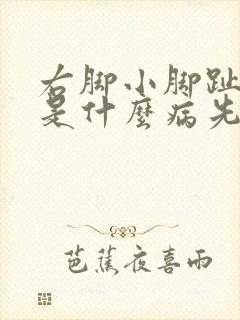 右脚小脚趾
是什麼病先
芭蕉夜喜雨